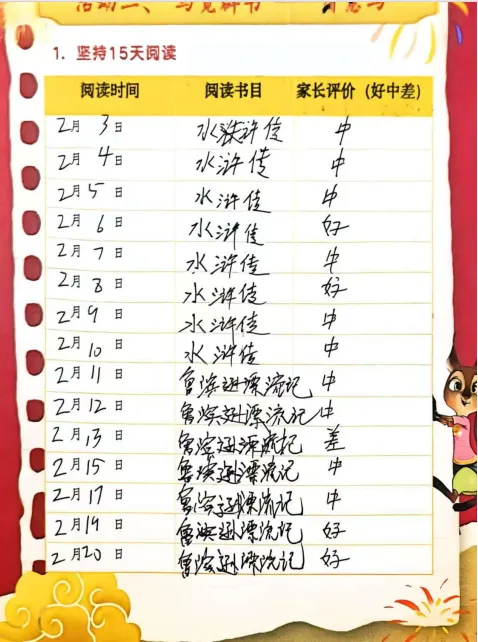 1. 坚持15天阅读
阅读时间 阅读书目 家长评价（好中差）
2月3日 水浒传 中
2月4日 水浒传 中
2月5日 水浒传 中
2月6日 水浒传 好
2月7日 水浒传 中
2月8日 水浒传 好
2月9日 水浒传 中
2月10日 水浒传 中
2月11日 鲁滨逊漂流记 中
2月12日 鲁滨逊漂流记 中
2月13日 鲁滨逊漂流记 差
2月15日 鲁滨逊漂流记 中
2月17日 鲁滨逊漂流记 中
2月19日 鲁滨逊漂流记 好
2月20日 鲁滨逊漂流记 好